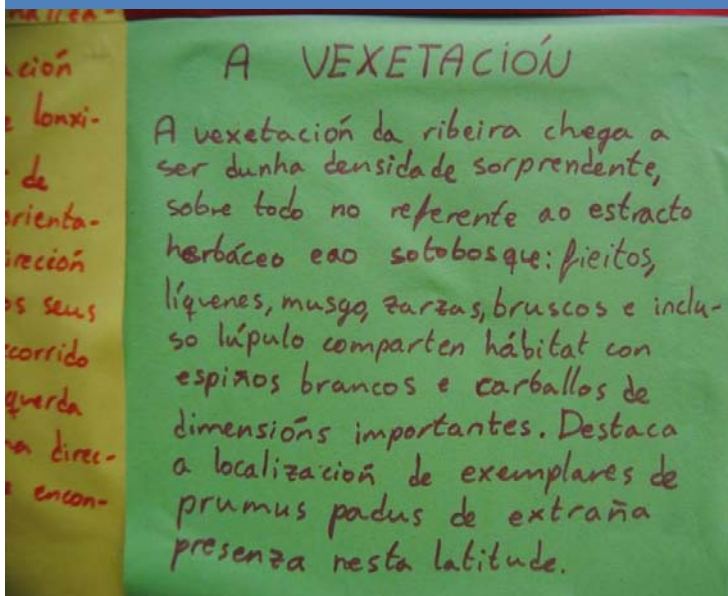 ción
lonxi-
de
orienta-
irección
os seus
corrido
querda
direc-
encon-
A VEXETACIÓN
A vexetación da ribeira chega a
ser dunha densidade sorprendente,
sobre todo no referente ao estracto
herbáceo eao sotobosque: fieitos,
líquenes, musgo, zarzas, bruscos e inclu-
so lúpulo comparten hábitat con
espiños brancos e carballos de
dimensións importantes. Destaca
a localización de exemplares de
prumus padus de extraña
presenza nesta latitude.